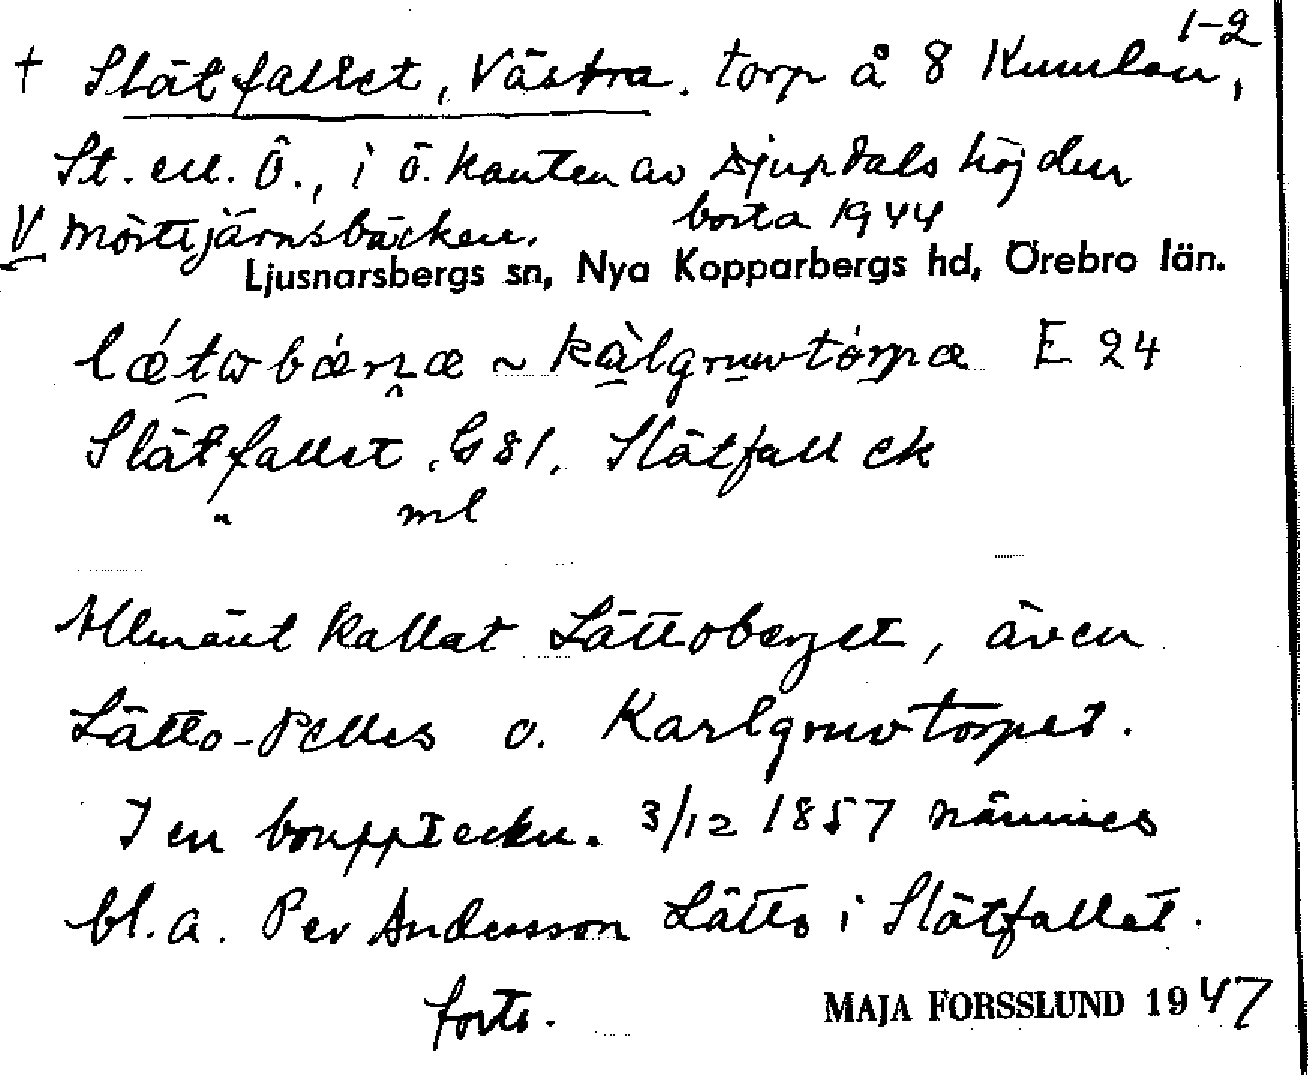 1-2
† Slätfallet, Västra. torp å 8 Kumlan,
St. ell. Ö., i ö. kanten av Djupdalshöjden
V Mörttjärnsbäcken. borta 1944
Ljusnarsbergs sn, Nya Kopparbergs hd, Örebro län.
E 24
Slätfallet, G 81. Slätfall ek
" ml
Allmänt kallat Lättoberget, även
Lätto-Pelles o. Karlgruvtorpet.
I en bouppteckn. 3/12 1857 nämnes
bl.a. Per Andersson Lätto i Slätfallet.
forts.
MAJA FORSSLUND 1947